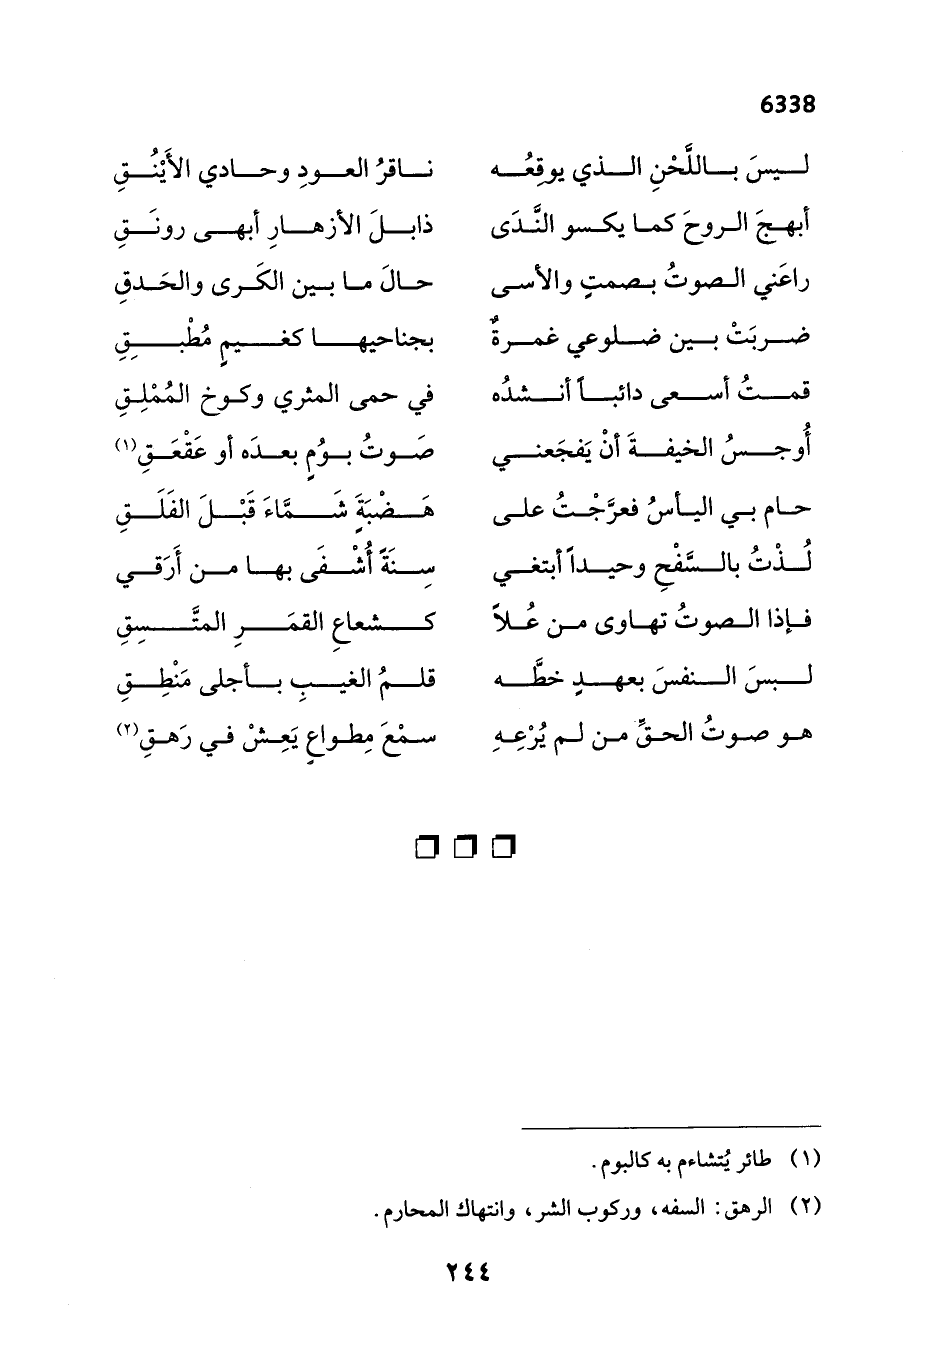 6338
ليسَ باللَّحْنِ الذي يوقِعُه ناقرُ العودِ وحادي الأَيْنُقِ
أبهجَ الروحَ كما يكسو النَّدَى ذابلَ الأزهارِ أبهى رونَقِ
راعَني الصوتُ بصمتٍ والأسى حالَ ما بين الكَرى والحَدقِ
ضربَتْ بين ضلوعي غمرةٌ بجناحيها كغيمٍ مُطْبِقِ
قمتُ أسعى دائباً أنشدُه في حمى المثري وكوخ المُمْلِقِ
أُوجسُ الخيفةَ أنْ يَفجَعني صَوتُ بوُمٍ بعدَه أو عَقْعَقِ(١)
حام بي اليأسُ فعرَّجْتُ على هَضْبَةٍ شَمَّاءَ قَبْلَ الفَلَقِ
لُذْتُ بالسَّفْحِ وحيداً أبتغي سِنَةً أُشْفَى بها من أَرَقي
فإذا الصوتُ تهاوى من عُلاً كشعاعِ القمَرِ المتَّسِقِ
لبسَ النفسَ بعهدٍ خطَّه قلمُ الغيبِ بأجلى مَنْطِقِ
هو صوتُ الحقِّ من لم يُرْعِهِ سمْعَ مِطواعٍ يَعِشْ في رَهقِ(٢)
(١) طائر يُتشاءم به كالبوم.
(٢) الرهق: السفه، وركوب الشر، وانتهاك المحارم.
٢٤٤